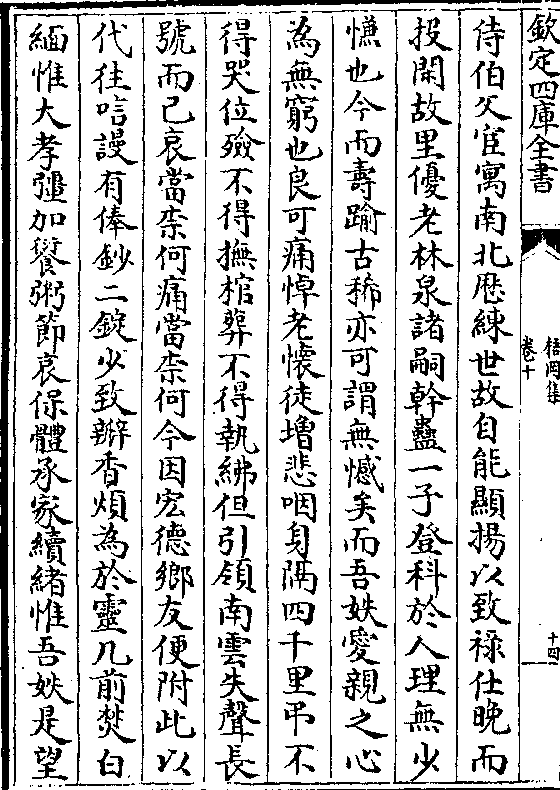 欽定四庫全書
梧岡集
卷十
十四
侍伯父宦寓南北厯練世故自能顯揚以致祿仕晚而
投閑故里優老林泉諸嗣幹蠱一子登科於人理無少
慊也今而壽踰古稀亦可謂無憾矣而吾姪愛親之心
為無窮也良可痛悼老懷徒增悲咽身隔四千里弔不
得哭位殮不得撫棺葬不得執紼但引領南雲失聲長
號而已哀當柰何痛當柰何今因宏德鄉友便附此以
代往唁謾有俸鈔二錠少致瓣香煩為於靈几前焚白
緬惟大孝彊加餐粥節哀保體承家續緒惟吾姪是望